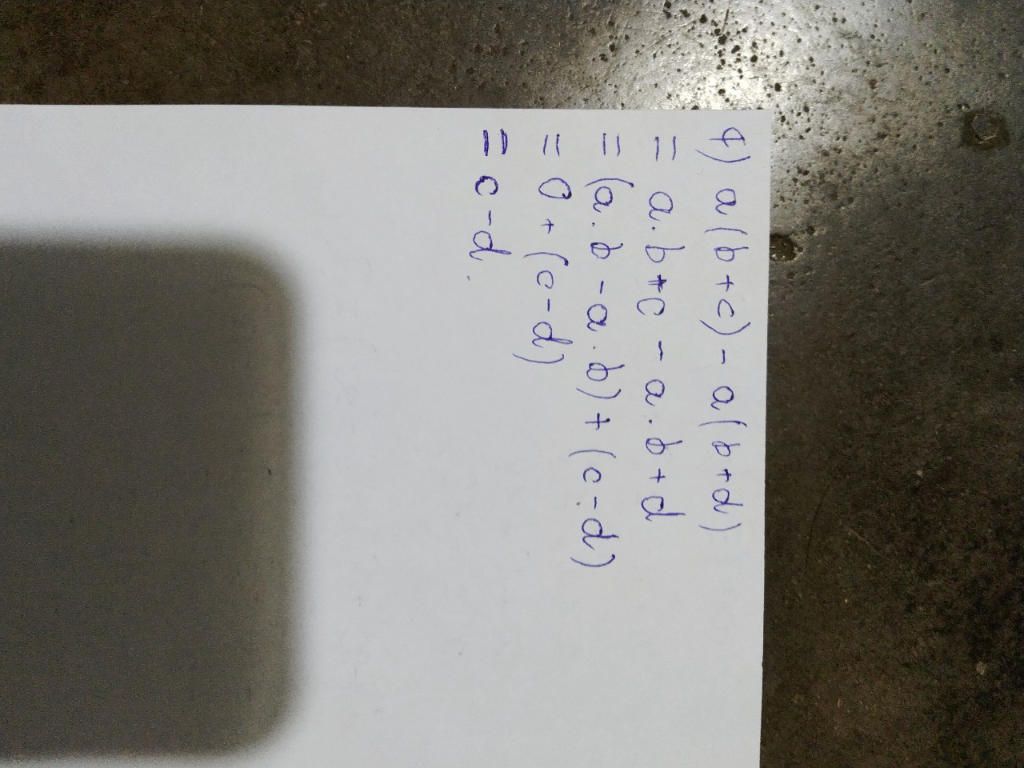 1) a(b+c) - a(b+d)
= a.b+c - a.b+d
= (a.b - a.b) + (c-d)
= 0 + (c-d)
= c-d.